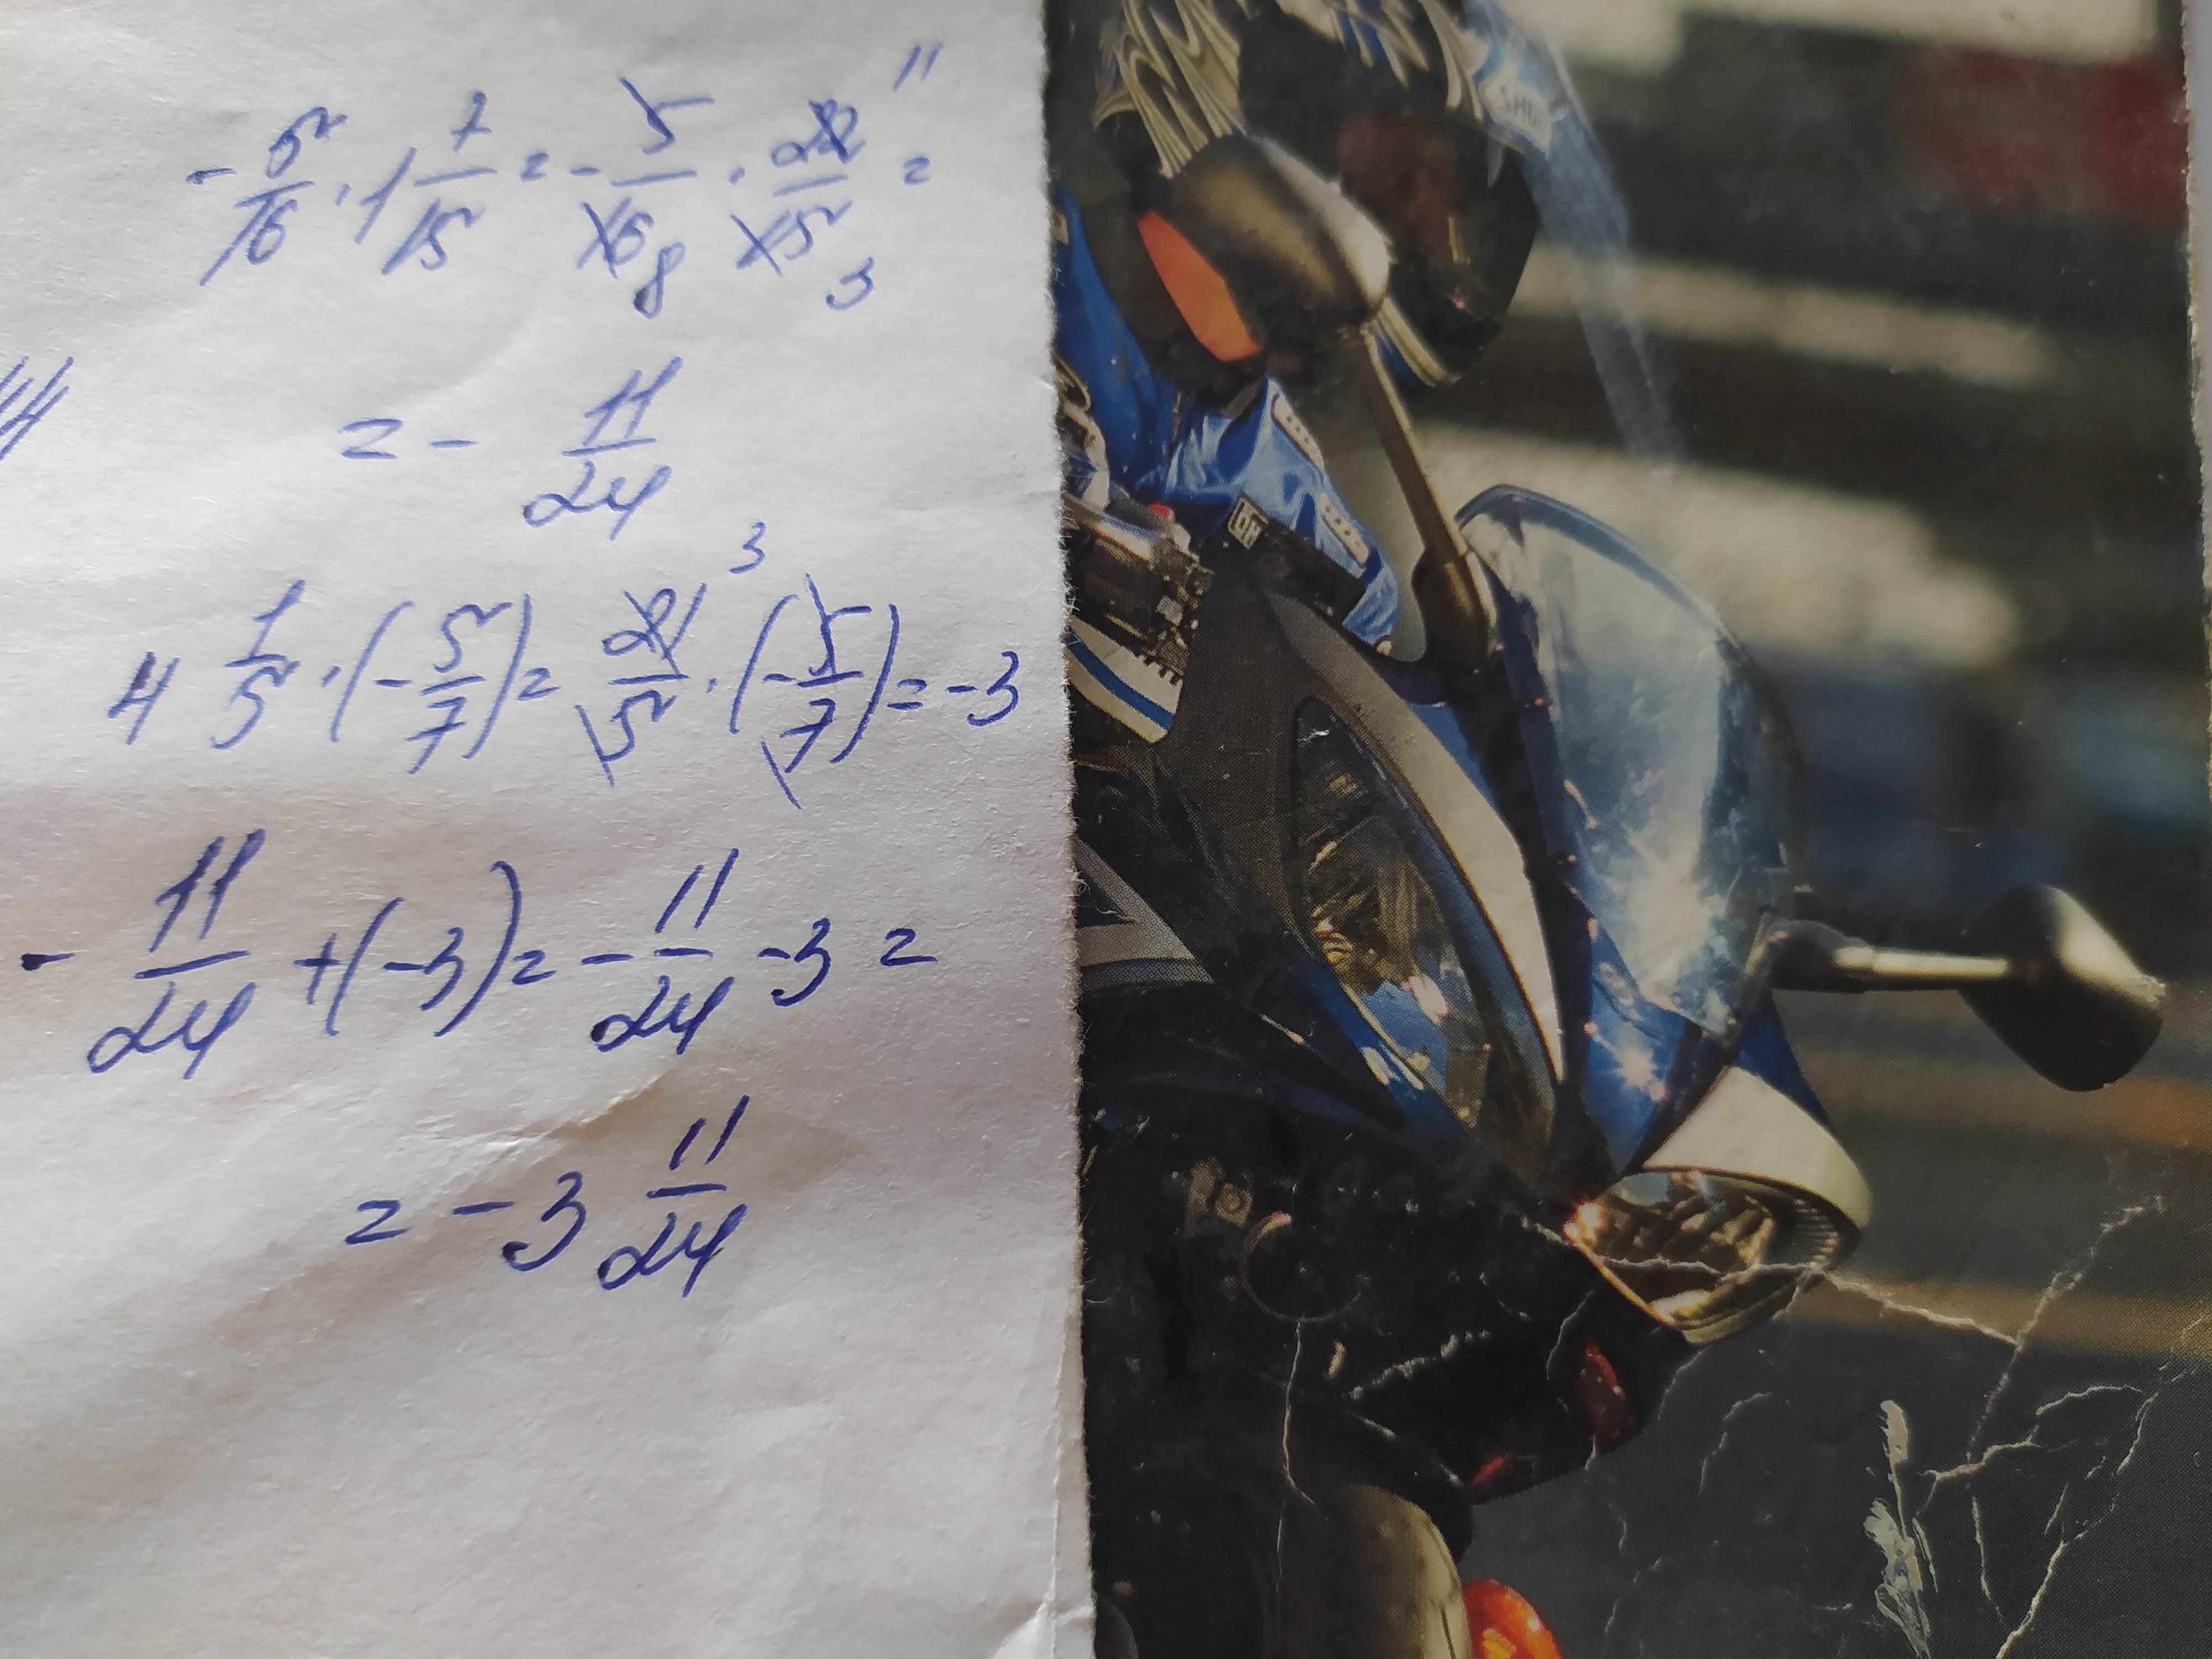 - 5/16 · 1 7/15 = - 5/16 8 · 22/15 3 11 =
= - 11/24
4 1/5 · (- 5/7) = 21/5 3 · (- 5/7) = -3
- 11/24 + (-3) = - 11/24 - 3 =
= - 3 11/24